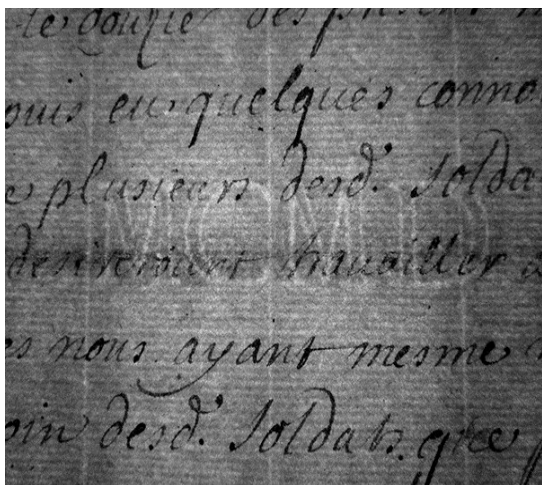 te douzie des présent
puis eu quelques conno
e plusieurs desd. Solda
desireroient travailler a
es nous ayant mesme
oin desd. Soldats que